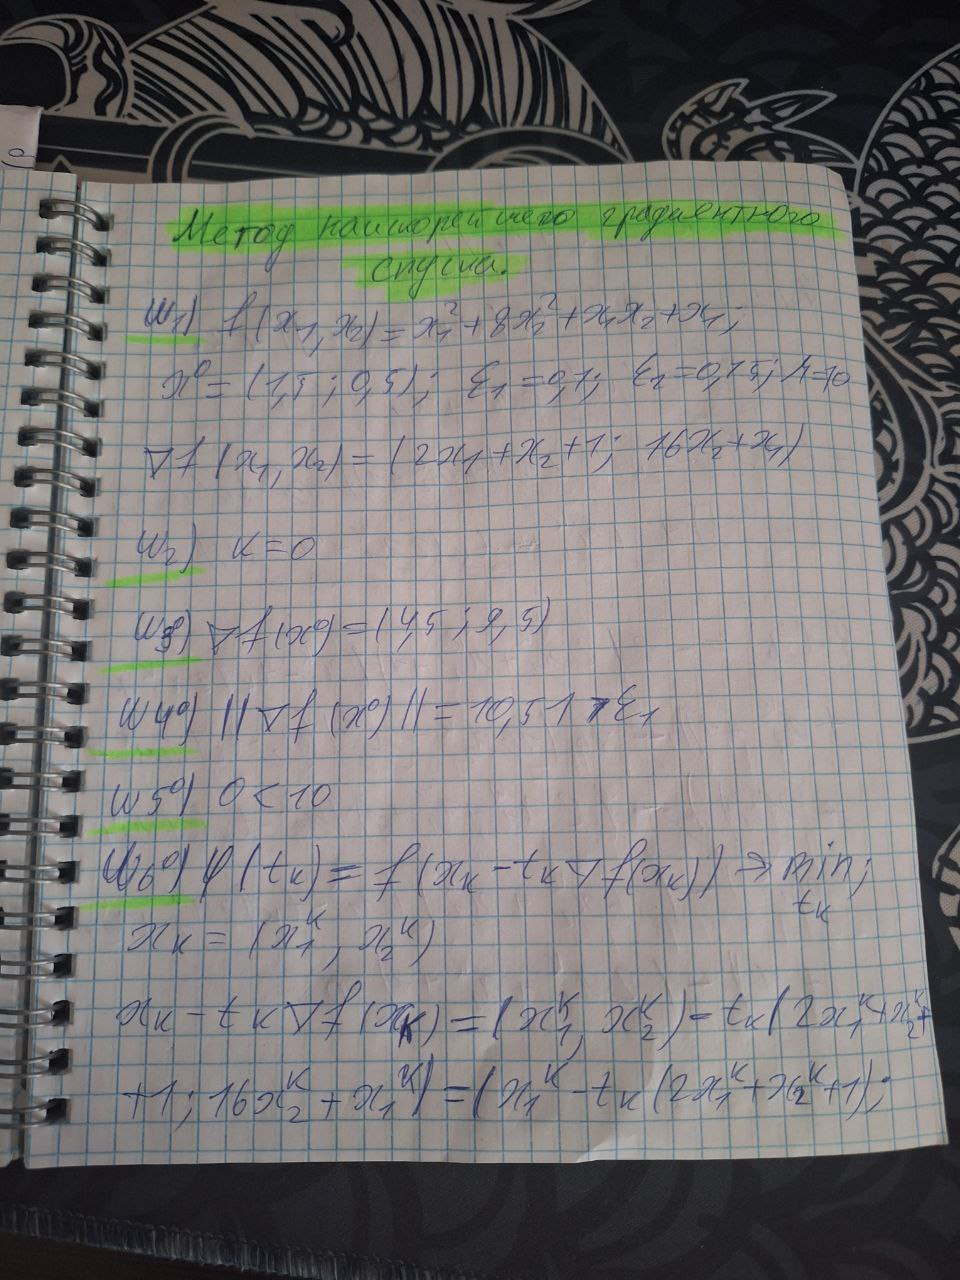 Метод наискорейшего градиентного
спуска.
ш1) f(x₁, x₂) = x₁² + 8x₂² + x₁x₂ + x₁;
x⁰ = (1,5; 0,5); ε₁ = 0,1; ε₂ = 0,15; M = 10
∇f(x₁, x₂) = (2x₁ + x₂ + 1; 16x₂ + x₁)
ш2) k = 0
ш3₀) ∇f(x₀) = (4,5; 9,5)
ш4₀) ||∇f(x₀)|| = 10,51 > ε₁
ш5₀) 0 < 10
ш6₀) φ(t_k) = f(x_k - t_k∇f(x_k)) → min;
t_k
x_k = (x₁ᵏ, x₂ᵏ)
x_k - t_k∇f(x_k) = (x₁ᵏ, x₂ᵏ) - t_k(2x₁ᵏ + x₂ᵏ +
+ 1; 16x₂ᵏ + x₁ᵏ) = (x₁ᵏ - t_k(2x₁ᵏ + x₂ᵏ + 1);